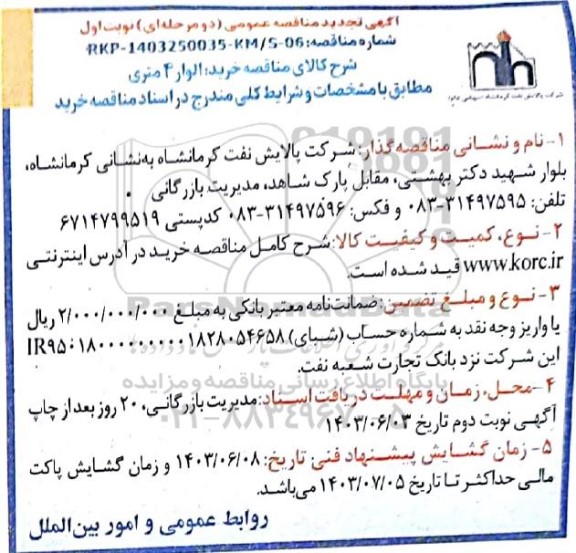 آگهی تجدید مناقصه عمومی (دو مرحله‌ای) نوبت اول
شماره مناقصه: RKP-1403250035-KM/S-06
شرح کالای مناقصه خرید: الوار ۴ متری
مطابق با مشخصات و شرایط کلی مندرج در اسناد مناقصه خرید
شرکت پالایش نفت کرمانشاه (سهامی عام)
۱- نام و نشانی مناقصه‌گذار: شرکت پالایش نفت کرمانشاه به‌نشانی کرمانشاه،
بلوار شهید دکتر بهشتی، مقابل پارک شاهد، مدیریت بازرگانی
تلفن: ۳۱۴۹۷۵۹۵-۰۸۳ و فکس: ۳۱۴۹۷۵۹۶-۰۸۳ کدپستی ۶۷۱۴۷۹۹۵۱۹
۲- نوع، کمیت و کیفیت کالا: شرح کامل مناقصه خرید در آدرس اینترنتی
www.korc.ir قید شده است.
۳- نوع و مبلغ تضمین: ضمانت‌نامه معتبر بانکی به مبلغ ۲/۰۰۰/۰۰۰/۰۰۰ ریال
یا واریز وجه نقد به شماره حساب (شبای) IR۹۵۰۱۸۰۰۰۰۰۰۰۰۰۰۱۸۲۸۰۵۴۶۵۸
این شرکت نزد بانک تجارت شعبه نفت.
۴- محل، زمان و مهلت دریافت اسناد: مدیریت بازرگانی، ۲۰ روز بعد از چاپ
آگهی نوبت دوم تاریخ ۱۴۰۳/۰۶/۰۳
۵- زمان گشایش پیشنهاد فنی: تاریخ: ۱۴۰۳/۰۶/۰۸ و زمان گشایش پاکت
مالی حداکثر تا تاریخ ۱۴۰۳/۰۷/۰۵ می‌باشد.
روابط عمومی و امور بین‌الملل
ParsNamadData
پایگاه اطلاع رسانی مناقصه و مزایده